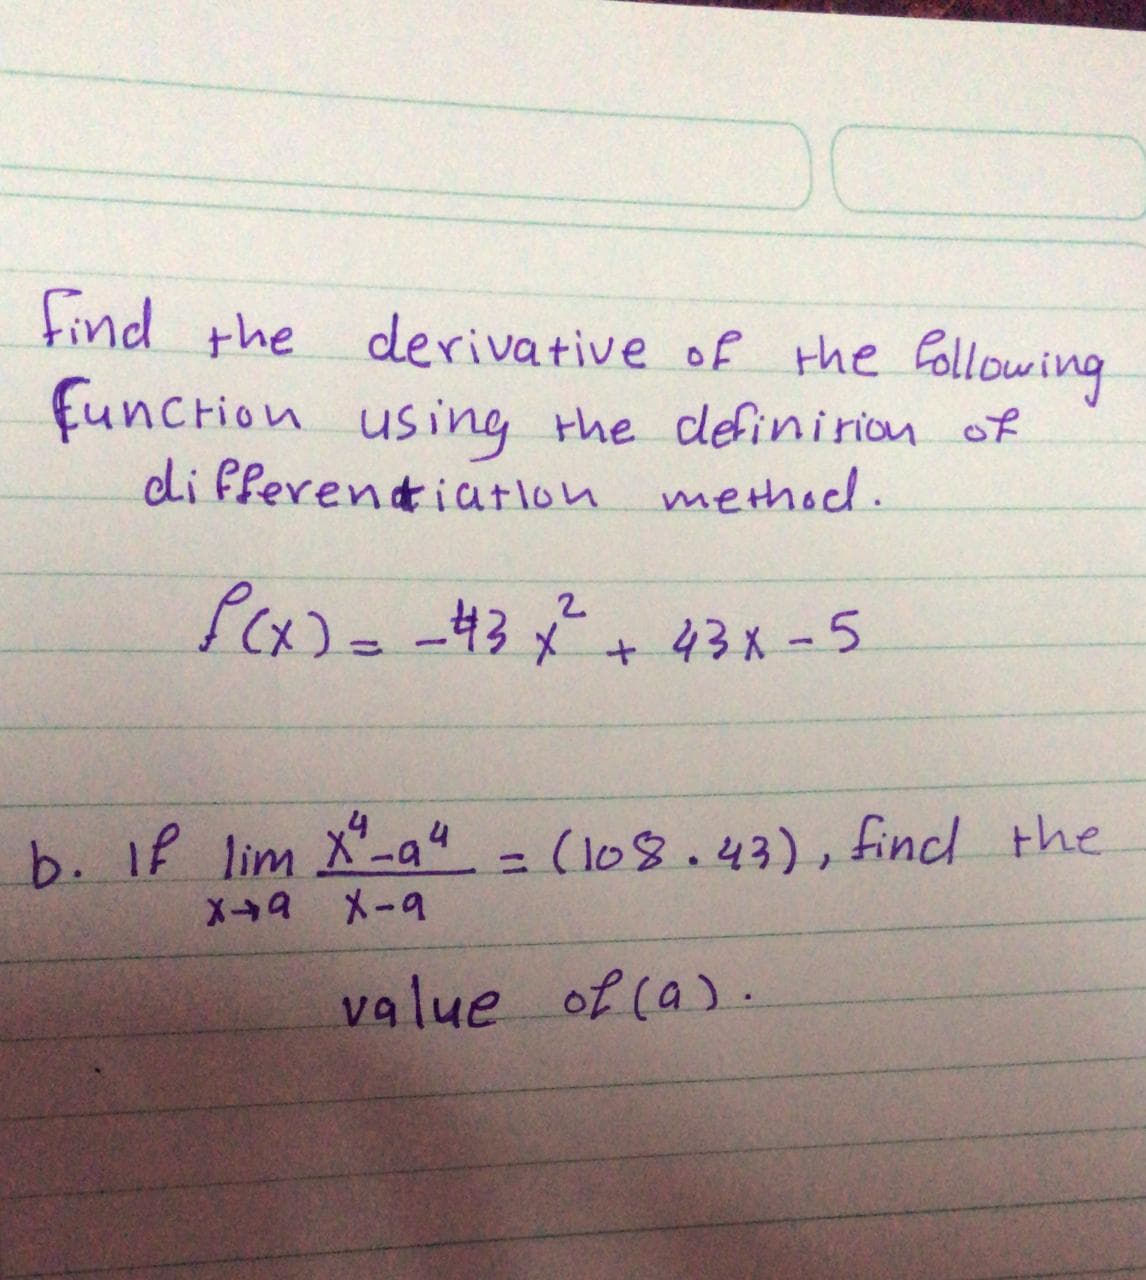 find the derivative of the following
function using the definition of
differentiation method.
f(x) = -43x² + 43x - 5
b. If lim x⁴-a⁴ = (108.43), find the
x→a x-a
value of (a).